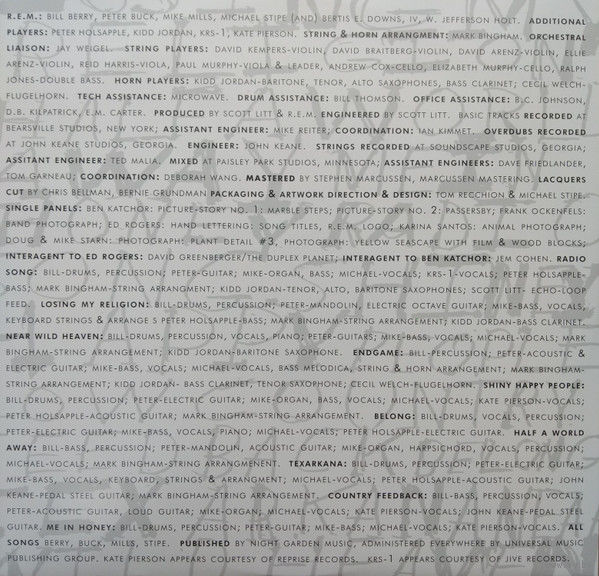 R.E.M.: BILL BERRY, PETER BUCK, MIKE MILLS, MICHAEL STIPE (AND) BERTIS E. DOWNS, IV, W. JEFFERSON HOLT. ADDITIONAL
PLAYERS: PETER HOLSAPPLE, KIDD JORDAN, KRS-1, KATE PIERSON. STRING & HORN ARRANGMENT: MARK BINGHAM, ORCHESTRAL
LIAISON: JAY WEIGEL. STRING PLAYERS: DAVID KEMPERS-VIOLIN, DAVID BRAITBERG-VIOLIN, DAVID ARENZ-VIOLIN, ELLIE
ARENZ-VIOLIN, REID HARRIS-VIOLA, PAUL MURPHY-VIOLA & LEADER, ANDREW COX-CELLO, ELIZABETH MURPHY-CELLO, RALPH
JONES-DOUBLE BASS. HORN PLAYERS: KIDD JORDAN-BARITONE, TENOR, ALTO SAXOPHONES, BASS CLARINET; CECIL WELCH-
FLUGELHORN. TECH ASSISTANCE: MICROWAVE. DRUM ASSISTANCE: BILL THOMSON. OFFICE ASSISTANCE: B.C. JOHNSON,
D.B. KILPATRICK, E.M. CARTER. PRODUCED BY SCOTT LITT & R.E.M. ENGINEERED BY SCOTT LITT. BASIC TRACKS RECORDED AT
BEARSVILLE STUDIOS, NEW YORK; ASSISTANT ENGINEER: MIKE REITER; COORDINATION: IAN KIMMET. OVERDUBS RECORDED
AT JOHN KEANE STUDIOS, GEORGIA. ENGINEER: JOHN KEANE. STRINGS RECORDED AT SOUNDSCAPE STUDIOS, GEORGIA;
ASSITANT ENGINEER: TED MALIA. MIXED AT PAISLEY PARK STUDIOS, MINNESOTA; ASSISTANT ENGINEERS: DAVE FRIEDLANDER,
TOM GARNEAU; COORDINATION: DEBORAH WANG. MASTERED BY STEPHEN MARCUSSEN, MARCUSSEN MASTERING. LACQUERS
CUT BY CHRIS BELLMAN, BERNIE GRUNDMAN PACKAGING & ARTWORK DIRECTION & DESIGN: TOM RECCHION & MICHAEL STIPE.
SINGLE PANELS: BEN KATCHOR: PICTURE-STORY NO. 1: MARBLE STEPS; PICTURE-STORY NO. 2: PASSERSBY; FRANK OCKENFELS:
BAND PHOTOGRAPH; ED ROGERS: HAND LETTERING: SONG TITLES, R.E.M. LOGO; KARINA SANTOS: ANIMAL PHOTOGRAPH;
DOUG & MIKE STARN: PHOTOGRAPH: PLANT DETAIL #3, PHOTOGRAPH: YELLOW SEASCAPE WITH FILM & WOOD BLOCKS;
INTERAGENT TO ED ROGERS: DAVID GREENBERGER/THE DUPLEX PLANET; INTERAGENT TO BEN KATCHOR: JEM COHEN. RADIO
SONG: BILL-DRUMS, PERCUSSION; PETER-GUITAR; MIKE-ORGAN, BASS; MICHAEL-VOCALS; KRS-1-VOCALS; PETER HOLSAPPLE-
BASS; MARK BINGHAM-STRING ARRANGEMENT; KIDD JORDAN-TENOR, ALTO, BARITONE SAXOPHONES; SCOTT LITT- ECHO-LOOP
FEED. LOSING MY RELIGION: BILL-DRUMS, PERCUSSION; PETER-MANDOLIN, ELECTRIC OCTAVE GUITAR; MIKE-BASS, VOCALS,
KEYBOARD STRINGS & ARRANGE S PETER HOLSAPPLE-BASS; MARK BINGHAM-STRING ARRANGEMENT; KIDD JORDAN-BASS CLARINET.
NEAR WILD HEAVEN: BILL-DRUMS, PERCUSSION, VOCALS, PIANO; PETER-GUITARS; MIKE-BASS, VOCALS; MICHAEL-VOCALS; MARK
BINGHAM-STRING ARRANGEMENT; KIDD JORDAN-BARITONE SAXOPHONE. ENDGAME: BILL-PERCUSSION; PETER-ACOUSTIC &
ELECTRIC GUITAR; MIKE-BASS, VOCALS; MICHAEL-VOCALS, BASS MELODICA, STRING & HORN ARRANGEMENT; MARK BINGHAM-
STRING ARRANGEMENT; KIDD JORDAN- BASS CLARINET, TENOR SAXOPHONE; CECIL WELCH-FLUGELHORN. SHINY HAPPY PEOPLE:
BILL-DRUMS, PERCUSSION; PETER-ELECTRIC GUITAR; MIKE-ORGAN, BASS, VOCALS; MICHAEL-VOCALS; KATE PIERSON-VOCALS;
PETER HOLSAPPLE-ACOUSTIC GUITAR; MARK BINGHAM-STRING ARRANGEMENT. BELONG: BILL-DRUMS, VOCALS, PERCUSSION;
PETER-ELECTRIC GUITAR; MIKE-BASS, VOCALS, PIANO; MICHAEL-VOCALS; PETER HOLSAPPLE-ELECTRIC GUITAR. HALF A WORLD
AWAY: BILL-BASS, PERCUSSION; PETER-MANDOLIN, ACOUSTIC GUITAR; MIKE-ORGAN, HARPSICHORD, VOCALS, PERCUSSION;
MICHAEL-VOCALS; MARK BINGHAM-STRING ARRANGMENENT. TEXARKANA: BILL-DRUMS, PERCUSSION; PETER-ELECTRIC GUITAR;
MIKE-BASS, VOCALS, KEYBOARD, STRINGS & ARRANGEMENT; MICHAEL-VOCALS; PETER HOLSAPPLE-ACOUSTIC GUITAR; JOHN
KEANE-PEDAL STEEL GUITAR; MARK BINGHAM-STRING ARRANGEMENT. COUNTRY FEEDBACK: BILL-BASS, PERCUSSION, VOCALS;
PETER-ACOUSTIC GUITAR, LOUD GUITAR; MIKE-ORGAN, MICHAEL-VOCALS; KATE PIERSON-VOCALS; JOHN KEANE-PEDAL STEEL
GUITAR. ME IN HONEY: BILL-DRUMS, PERCUSSION; PETER-GUITAR; MIKE-BASS; MICHAEL-VOCALS; KATE PIERSON-VOCALS. ALL
SONGS BERRY, BUCK, MILLS, STIPE. PUBLISHED BY NIGHT GARDEN MUSIC, ADMINISTERED EVERYWHERE BY UNIVERSAL MUSIC
PUBLISHING GROUP. KATE PIERSON APPEARS COURTESY OF REPRISE RECORDS. KRS-1 APPEARS COURTESY OF JIVE RECORDS.